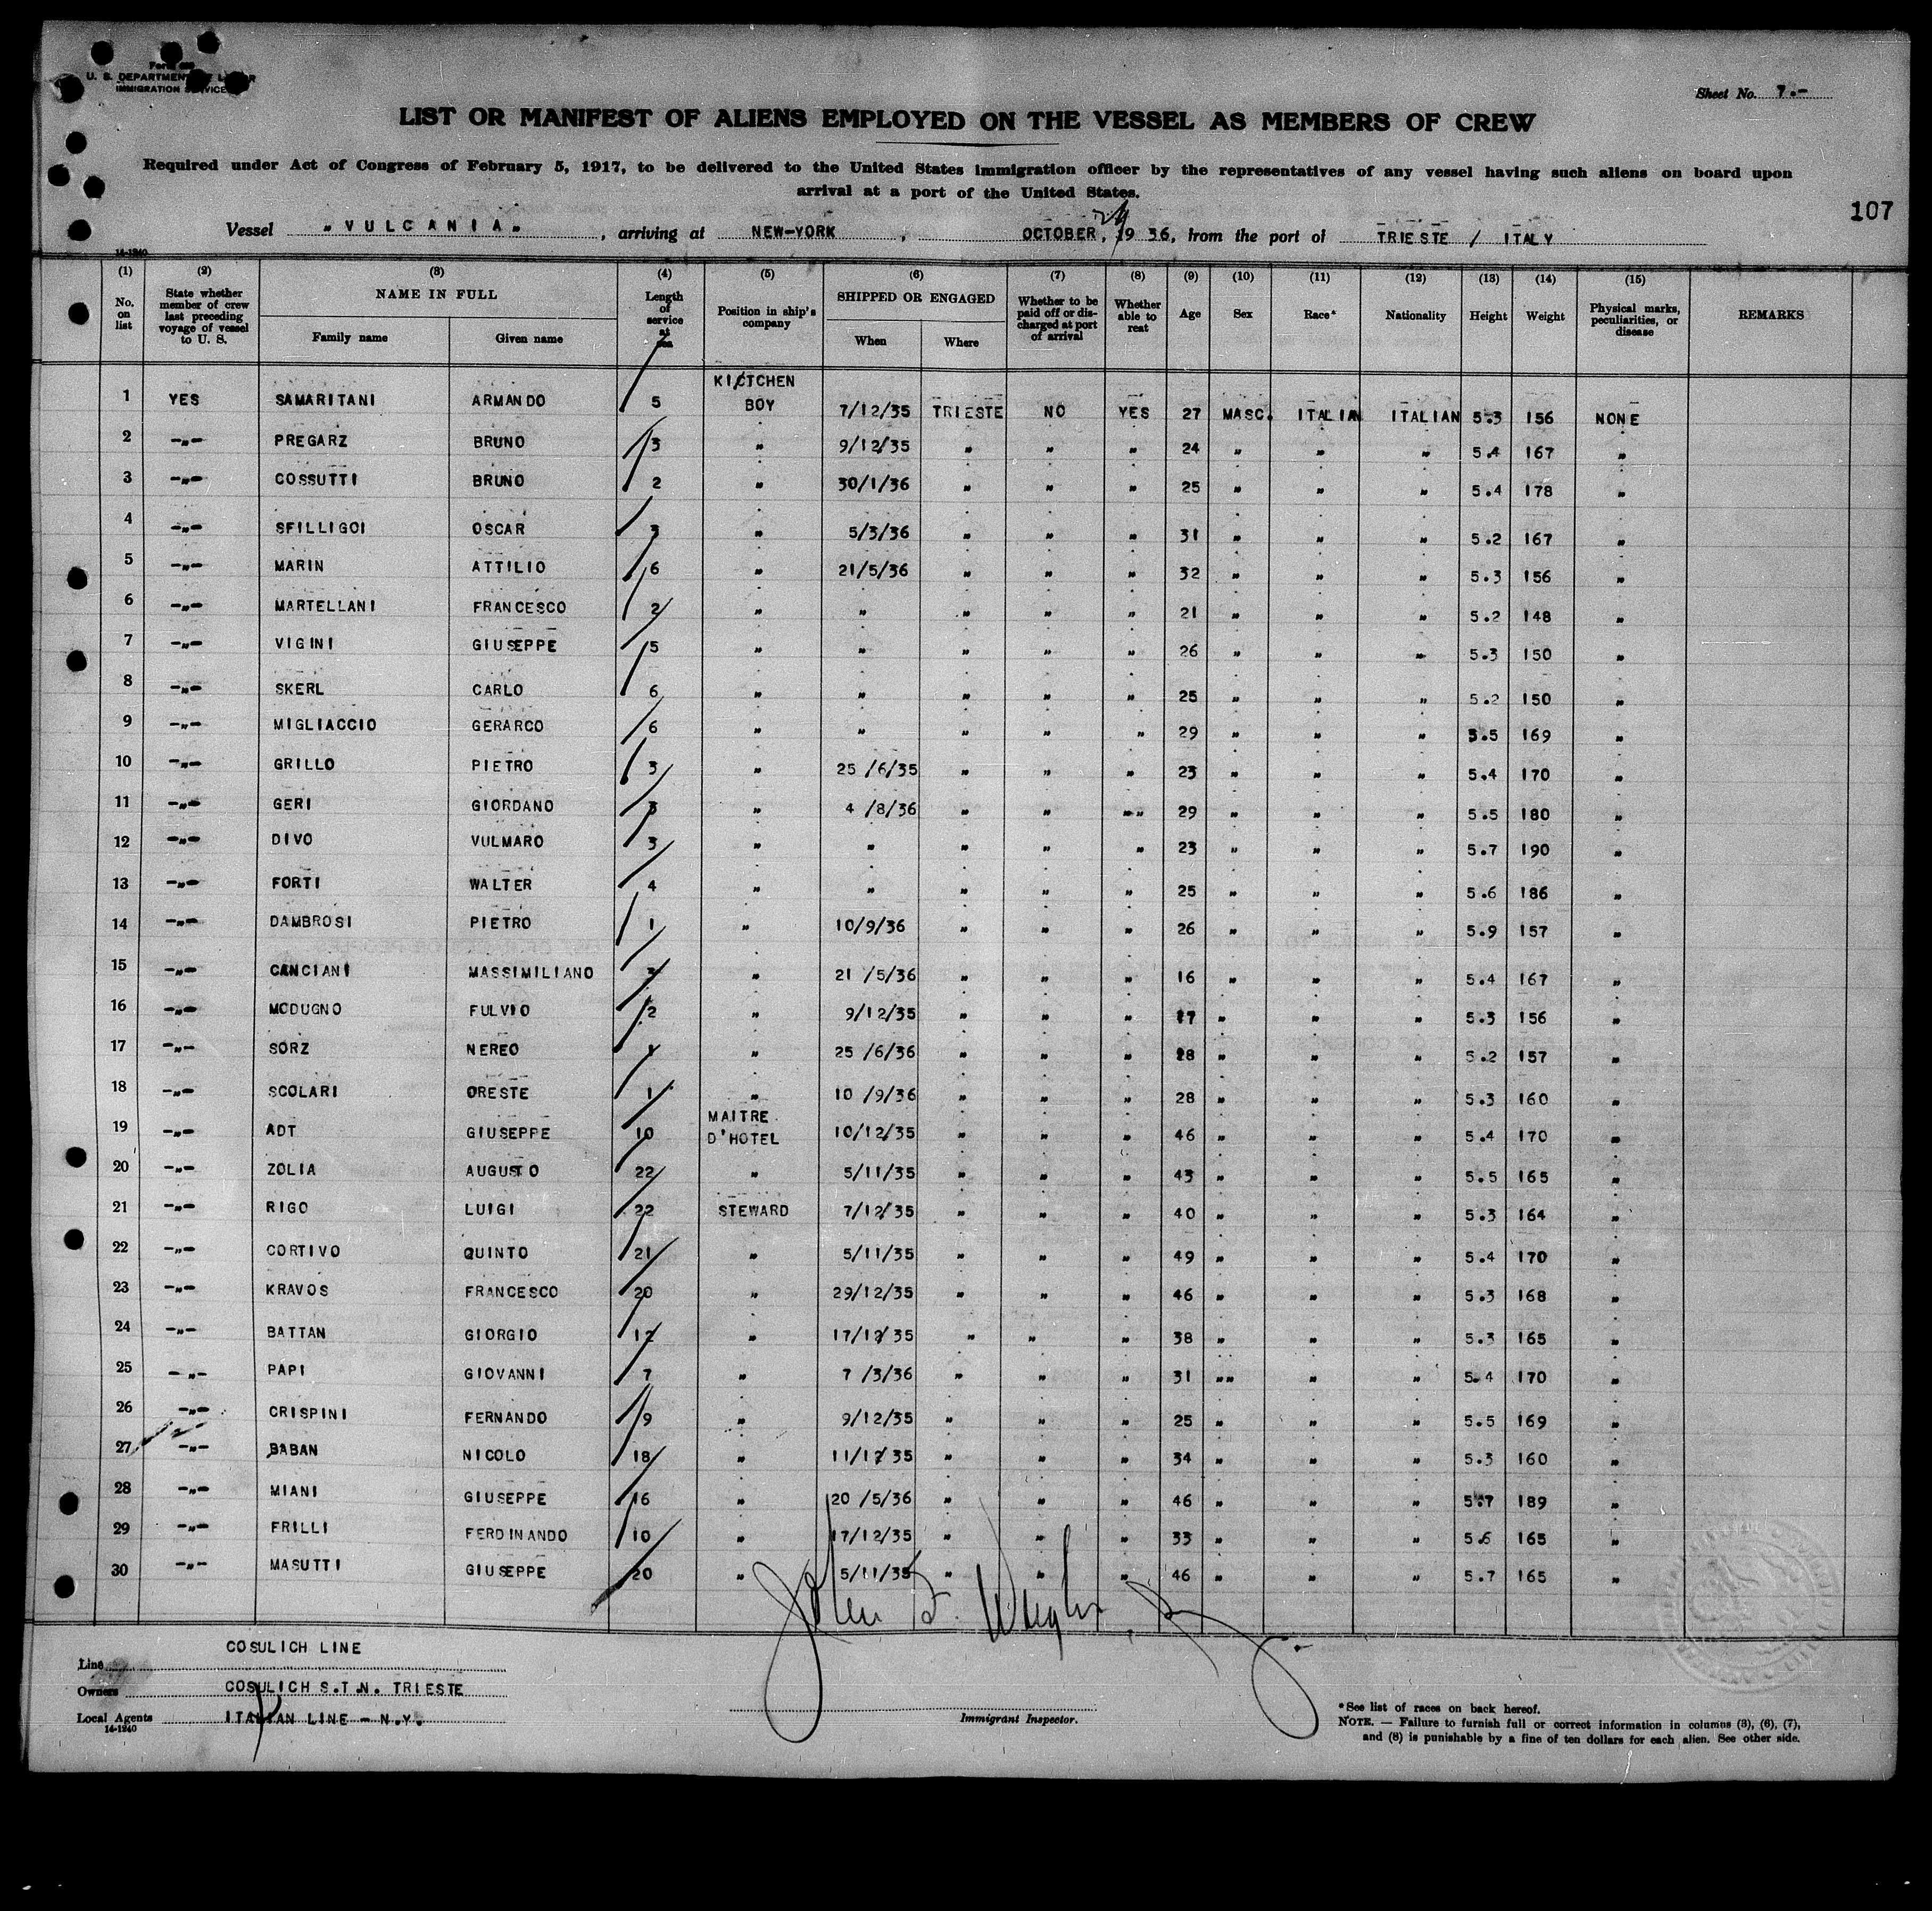 Form 689
U. S. DEPARTMENT OF LABOR
IMMIGRATION SERVICE
Sheet No. 7.-
LIST OR MANIFEST OF ALIENS EMPLOYED ON THE VESSEL AS MEMBERS OF CREW
Required under Act of Congress of February 5, 1917, to be delivered to the United States immigration officer by the representatives of any vessel having such aliens on board upon
arrival at a port of the United States.
107
Vessel "VULCANIA", arriving at NEW-YORK, OCTOBER, 1936, from the port of TRIESTE / ITALY
14-1240
(1) No. on list (2) State whether member of crew last preceding voyage of vessel to U. S. (3) NAME IN FULL Family name Given name (4) Length of service at sea (5) Position in ship's company (6) SHIPPED OR ENGAGED When Where (7) Whether to be paid off or discharged at port of arrival (8) Whether able to read (9) Age (10) Sex (11) Race* (12) Nationality (13) Height (14) Weight (15) Physical marks, peculiarities, or disease REMARKS
1 YES SAMARITANI ARMANDO 5 KITCHEN BOY 7/12/35 TRIESTE NO YES 27 MASC. ITALIAN ITALIAN 5.3 156 NONE
2 -"- PREGARZ BRUNO 3 " 9/12/35 " " " 24 " " " 5.4 167 "
3 -"- COSSUTTI BRUNO 2 " 30/1/36 " " " 25 " " " 5.4 178 "
4 -"- SFILLIGOI OSCAR 3 " 5/3/36 " " " 31 " " " 5.2 167 "
5 -"- MARIN ATTILIO 6 " 21/5/36 " " " 32 " " " 5.3 156 "
6 -"- MARTELLANI FRANCESCO 2 " " " " " 21 " " " 5.2 148 "
7 -"- VIGINI GIUSEPPE 5 " " " " " 26 " " " 5.3 150 "
8 -"- SKERL CARLO 6 " " " " " 25 " " " 5.2 150 "
9 -"- MIGLIACCIO GERARCO 6 " " " " " 29 " " " 5.5 169 "
10 -"- GRILLO PIETRO 3 " 25 /6/35 " " " 23 " " " 5.4 170 "
11 -"- GERI GIORDANO 3 " 4 /8/36 " " "" 29 " " " 5.5 180 "
12 -"- DIVO VULMARO 3 " " " " " 23 " " " 5.7 190 "
13 -"- FORTI WALTER 4 " " " " " 25 " " " 5.6 186 "
14 -"- DAMBROSI PIETRO 1 " 10/9/36 " " " 26 " " " 5.9 157 "
15 -"- CANCIANI MASSIMILIANO " 21 /5/36 " " " 16 " " " 5.4 167 "
16 -"- MODUGNO FULVIO 2 " 9/12/35 " " " 17 " " " 5.3 156 "
17 -"- SORZ NEREO 1 " 25 /6/36 " " " 28 " " " 5.2 157 "
18 -"- SCOLARI ORESTE 1 " 10 /9/36 " " " 28 " " " 5.3 160 "
19 -"- ADT GIUSEPPE 10 MAITRE D'HOTEL 10/12/35 " " " 46 " " " 5.4 170 "
20 -"- ZOLIA AUGUSTO 22 " 5/11/35 " " " 43 " " " 5.5 165 "
21 -"- RIGO LUIGI 22 STEWARD 7/12/35 " " " 40 " " " 5.3 164 "
22 -"- CORTIVO QUINTO 21 " 5/11/35 " " " 49 " " " 5.4 170 "
23 -"- KRAVOS FRANCESCO 20 " 29/12/35 " " " 46 " " " 5.3 168 "
24 -"- BATTAN GIORGIO 12 " 17/12/35 " " " 38 " " " 5.3 165 "
25 -"- PAPI GIOVANNI 7 " 7 /3/36 " " " 31 "" " " 5.4 170 "
26 -"- CRISPINI FERNANDO 9 " 9/12/35 " " " 25 " " " 5.5 169 "
27 -"- BABAN NICOLO 18 " 11/12/35 " " " 34 " " " 5.3 160 "
28 -"- MIANI GIUSEPPE 16 " 20 /5/36 " " " 46 " " " 5.7 189 "
29 -"- FRILLI FERDINANDO 10 " 17/12/35 " " " 33 " " " 5.6 165 "
30 -"- MASUTTI GIUSEPPE 20 " 5/11/35 " " " 46 " " " 5.7 165 "
Line COSULICH LINE
Owners COSULICH S.T.N. TRIESTE
Local Agents ITALIAN LINE - N.Y.
14-1240
Immigrant Inspector.
*See list of races on back hereof.
NOTE. — Failure to furnish full or correct information in columns (3), (6), (7),
and (8) is punishable by a fine of ten dollars for each alien. See other side.